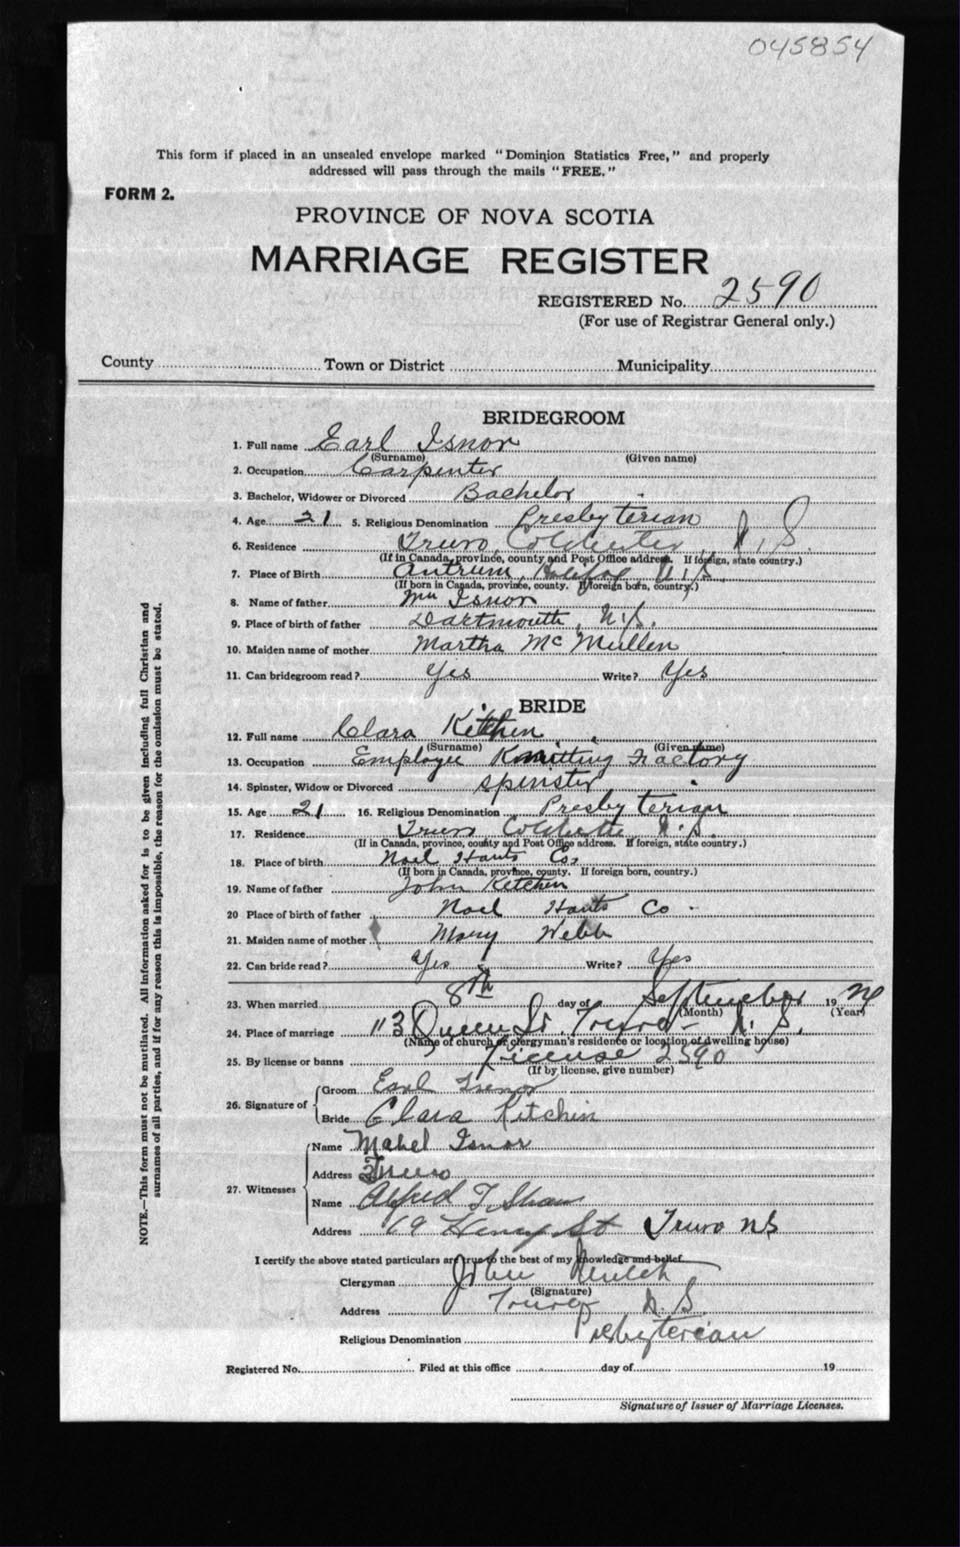 045854
This form if placed in an unsealed envelope marked "Dominion Statistics Free," and properly
addressed will pass through the mails "FREE."
FORM 2.
PROVINCE OF NOVA SCOTIA
MARRIAGE REGISTER
REGISTERED No. 2590
(For use of Registrar General only.)
County Town or District Municipality
BRIDEGROOM
1. Full name Earl Isnor
(Surname) (Given name)
2. Occupation Carpenter
3. Bachelor, Widower or Divorced Bachelor
4. Age 21 5. Religious Denomination Presbyterian
6. Residence Truro, Colchester N.S.
(If in Canada, province, county and Post Office address. If foreign, state country.)
7. Place of Birth Antrim, Halifax N.S.
(If born in Canada, province, county. If foreign born, country.)
8. Name of father Wm Isnor
9. Place of birth of father Dartmouth, N.S.
10. Maiden name of mother Martha McMullen
11. Can bridegroom read? Yes Write? Yes
BRIDE
12. Full name Clara Kitchin
(Surname) (Given name)
13. Occupation Employee Knitting Factory
14. Spinster, Widow or Divorced spinster
15. Age 21 16. Religious Denomination Presbyterian
17. Residence Truro Colchester N.S.
(If in Canada, province, county and Post Office address. If foreign, state country.)
18. Place of birth Noel Hants Co.
(If born in Canada, province, county. If foreign born, country.)
19. Name of father John Kitchen
20 Place of birth of father Noel Hants Co.
21. Maiden name of mother Mary Webb
22. Can bride read? Yes Write? Yes
23. When married 8th day of September 19
(Month) (Year)
24. Place of marriage 113 Queen St. Truro N.S.
(Name of church or clergyman's residence or location of dwelling house)
25. By license or banns License 2590
(If by license, give number)
26. Signature of
Groom Earl Isnor
Bride Clara Kitchin
27. Witnesses
Name Mabel Isnor
Address Truro
Name Alfred T. Shaw
Address 69 Henry St Truro NS
I certify the above stated particulars are true to the best of my knowledge and belief.
Clergyman John
(Signature)
Address Truro N.S.
Religious Denomination Presbyterian
Registered No. Filed at this office day of 19
Signature of Issuer of Marriage Licenses.
NOTE.—This form must not be mutilated. All information asked for is to be given including full Christian and
surnames of all parties, and if for any reason this is impossible, the reason for the omission must be stated.